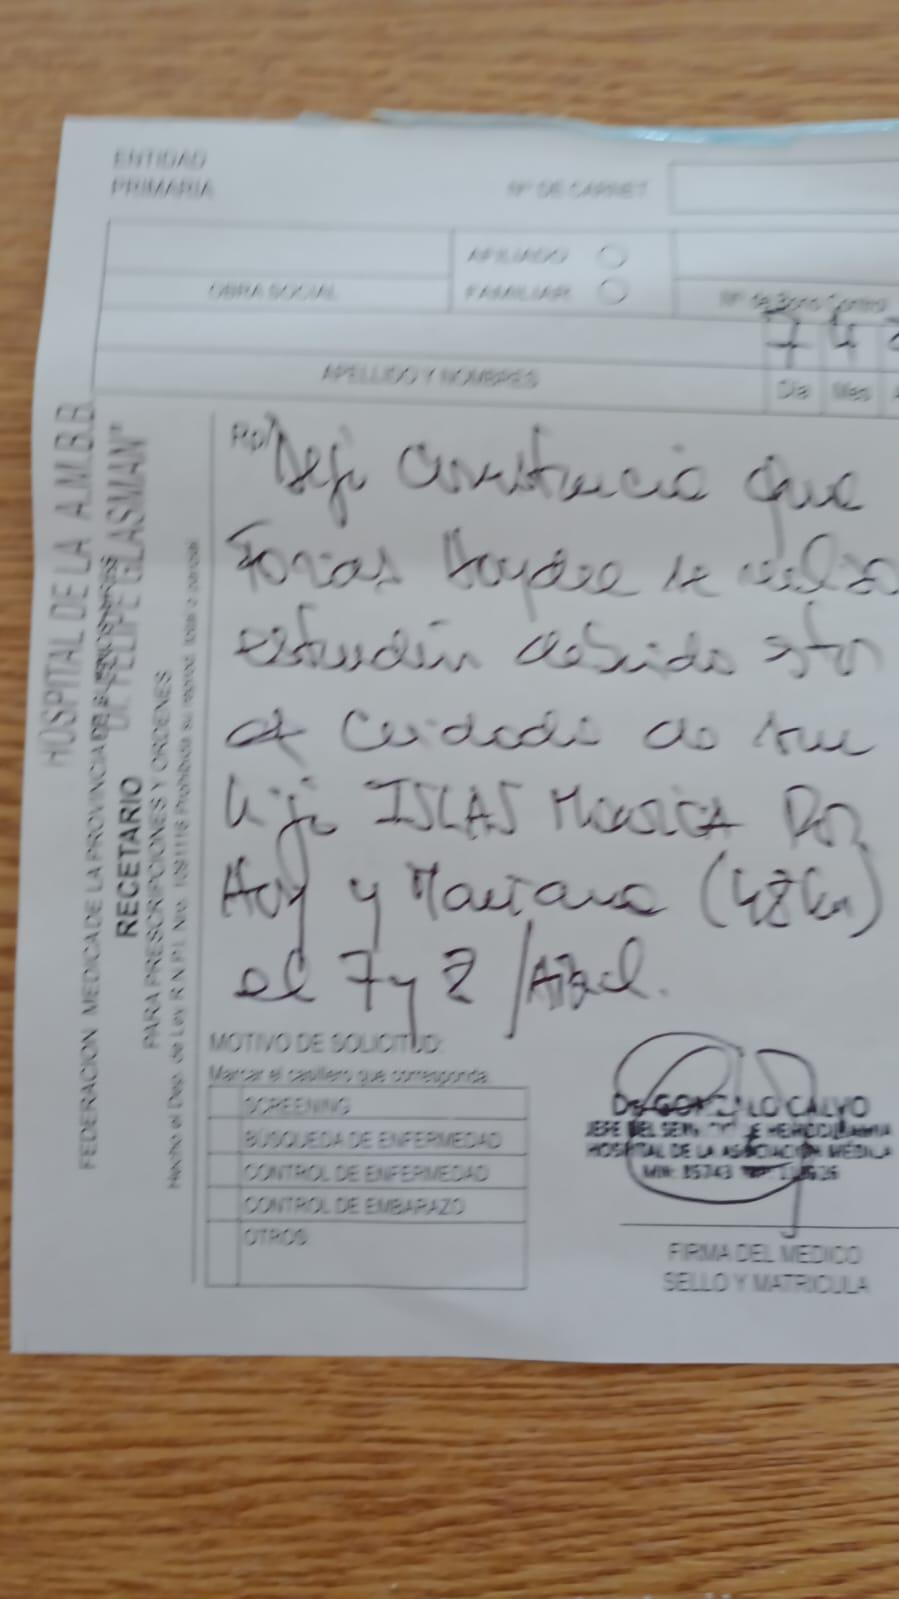 ENTIDAD
PRIMARIA
Nº DE CARNET
AFILIADO
OBRA SOCIAL
FAMILIAR
Nº de Bono Control
7 4
APELLIDO Y NOMBRES
Dia Mes
HOSPITAL DE LA A.M.B.B.
"Dr. FELIPE GLASMAN"
FEDERACION MEDICA DE LA PROVINCIA DE
RECETARIO
PARA PRESCRIPCIONES Y ORDENES
Hecho el Dep. de Ley R.N.P.I. Nro. Prohibida su total o parcial
Rp/ Dejo constancia que
Haydee se
estudio debido
al cuidado de su
hijo ISLAS Por
Hoy y Mañana (48
el 7 y 8 /Abril.
MOTIVO DE SOLICITUD:
Marcar el casillero que corresponda
SCREENING
BÚSQUEDA DE ENFERMEDAD
CONTROL DE ENFERMEDAD
CONTROL DE EMBARAZO
OTROS
Dr. GONZALO CALVO
JEFE DEL DE HEMODINAMIA
HOSPITAL DE LA ASOCIACIÓN MÉDICA
FIRMA DEL MEDICO
SELLO Y MATRICULA